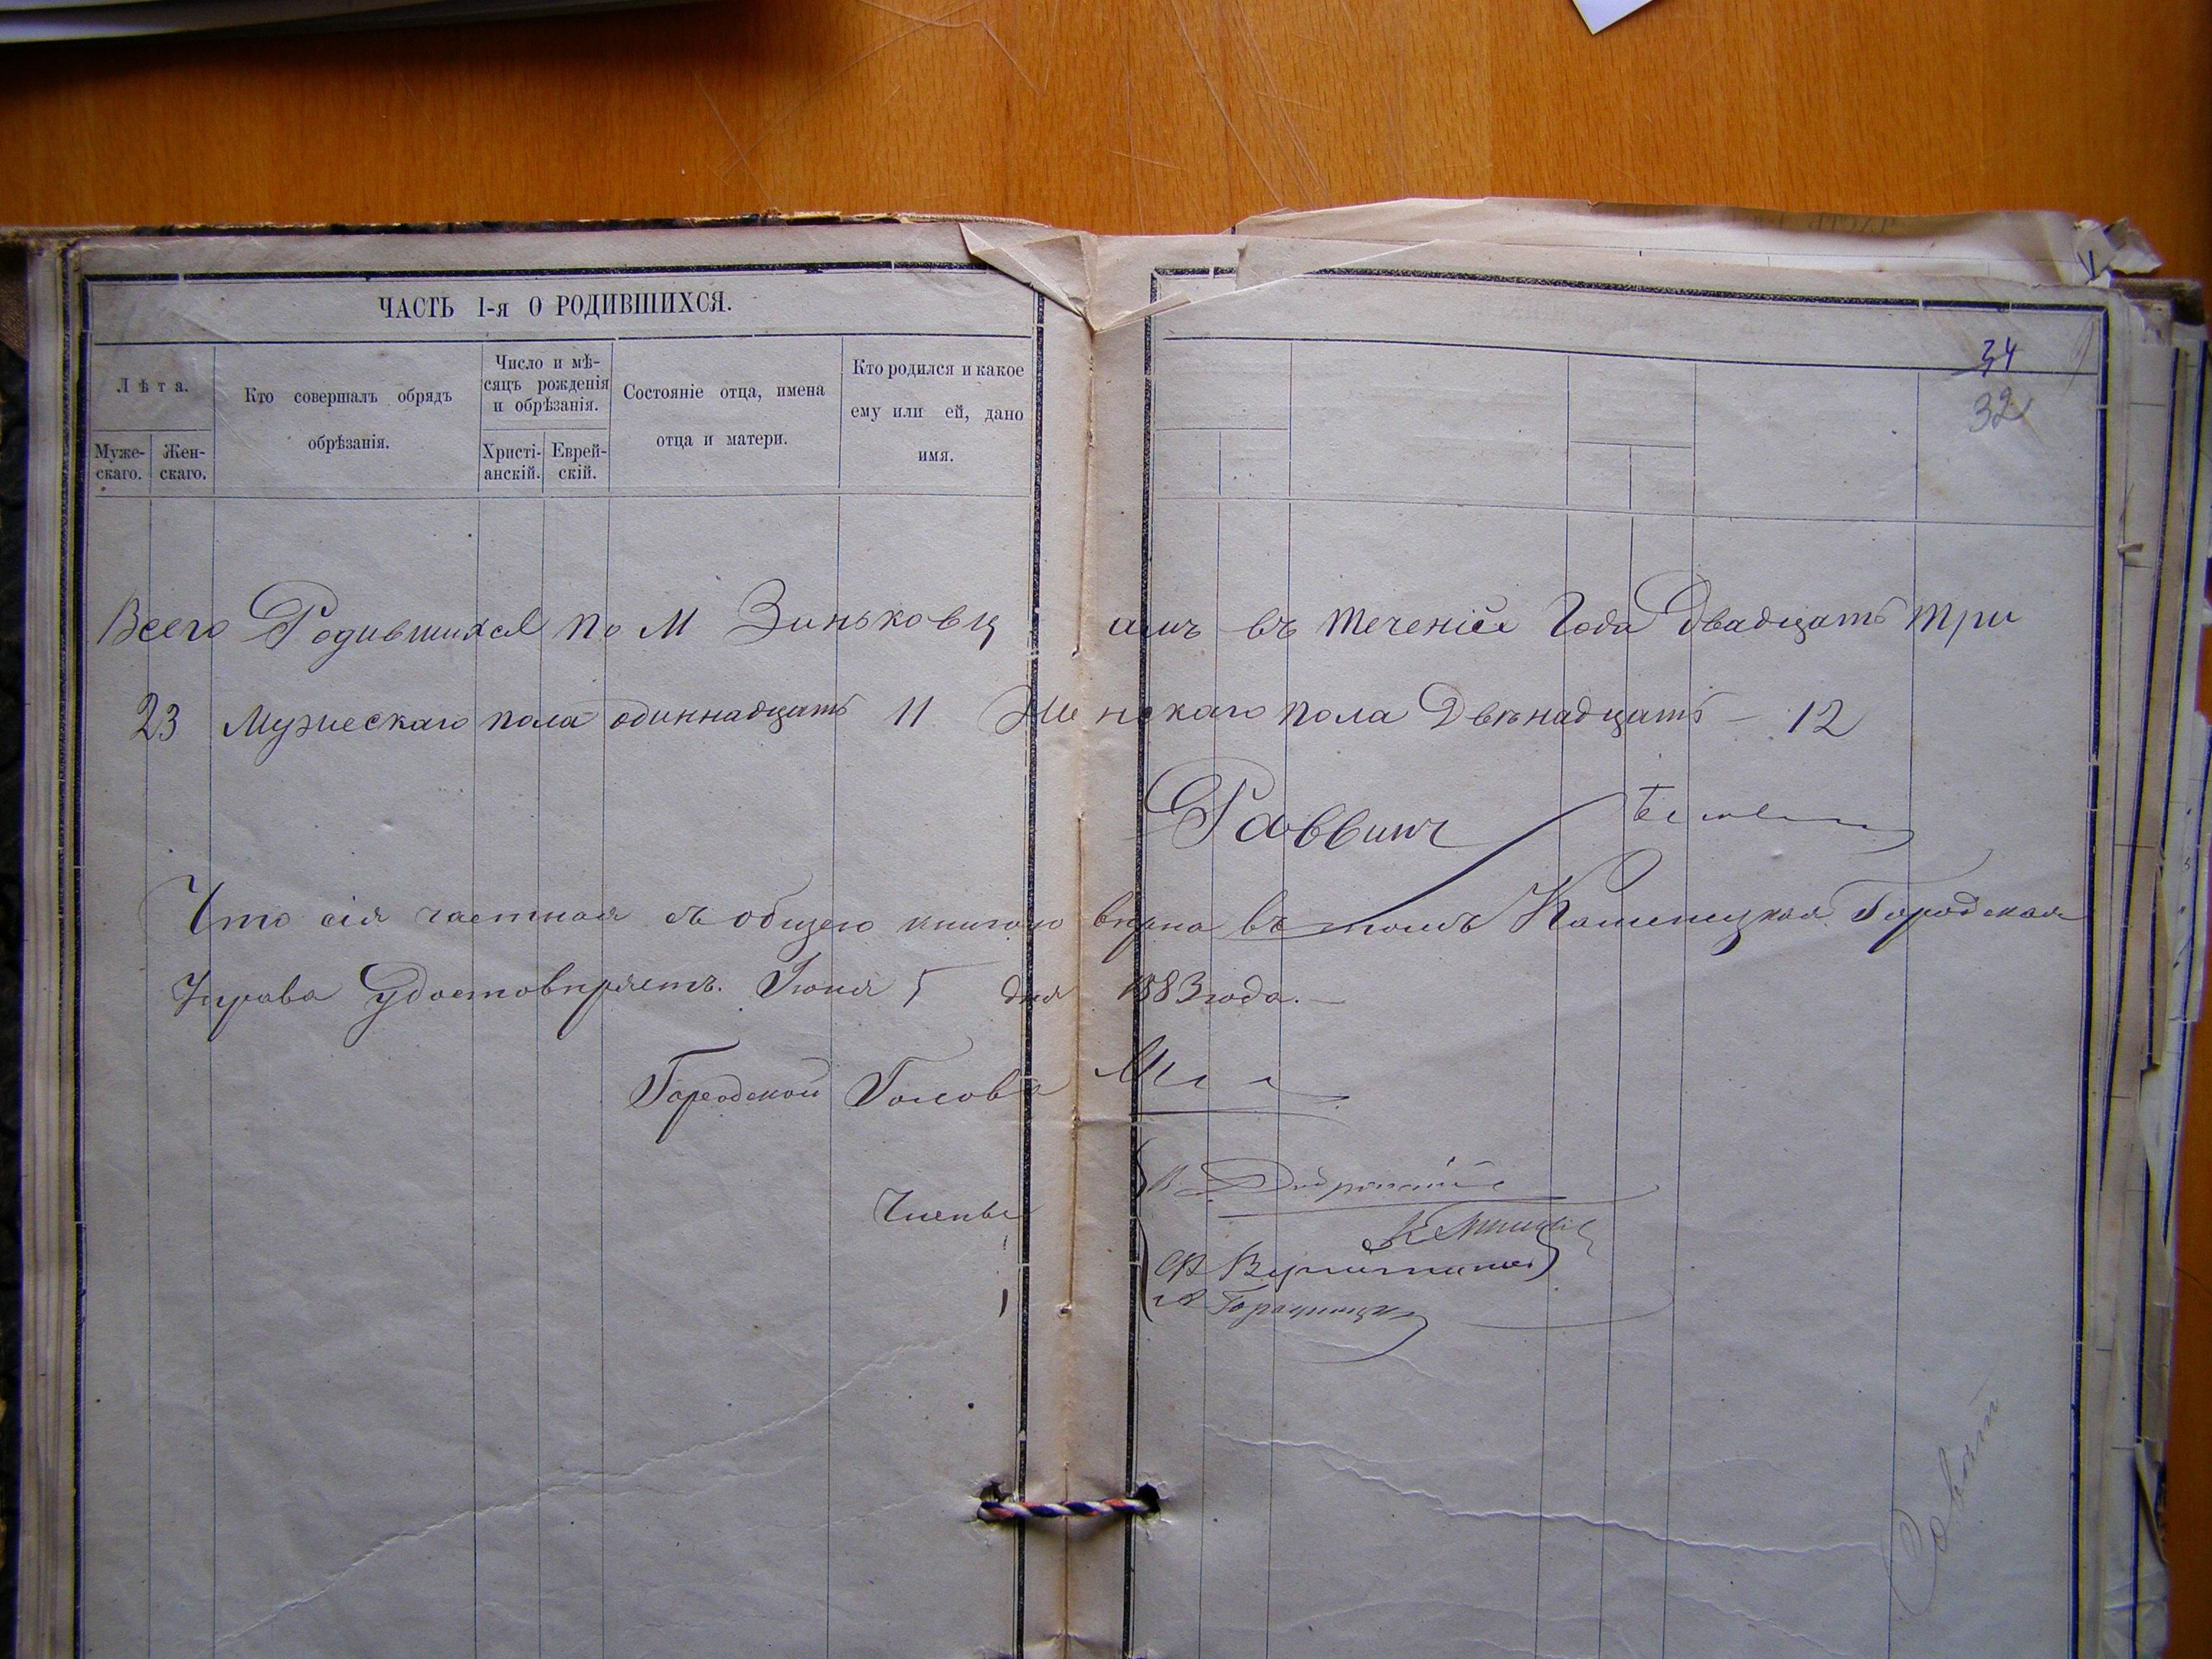 ЧАСТЬ 1-я О РОДИВШИХСЯ.
Лѣта.
Муже-
скаго.
Жен-
скаго.
Кто совершалъ обрядъ
обрѣзанія.
Число и мѣ-
сяцъ рожденія
и обрѣзанія.
Христі-
анскій.
Еврей-
скій.
Состояніе отца, имена
отца и матери.
Кто родился и какое
ему или ей, дано
имя.
34
32
Всего Родившихся по М Зиньковцамъ въ теченіе Года Двадцать три
23 Мужескаго пола одиннадцать 11 Женскаго пола Двѣнадцать – 12
Раввинъ
Что сія частная съ общею книгою вѣрна въ томъ Каменецкая Городская
Управа удостовѣряетъ. Іюня 5 дня 1883 года. –
Городской Голова
Члены